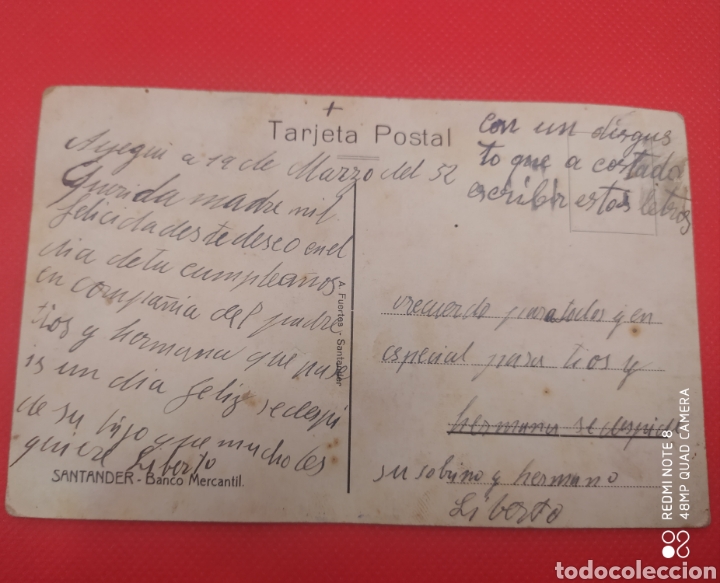 +
Tarjeta Postal
Ayegui a 19 de Marzo del 52
Querida madre mil
felicidades te deseo en el
dia de tu cumpleaños
en compañia del padre
tios y hermana que pase
is un dia feliz se despi
de su hijo que mucho les
quiere Liberto
SANTANDER - Banco Mercantil.
A. Fuertes - Santander
con un disgus
to que a costado
escribir estas letras
recuerdo para todos y en
especial para tios y
hermana se despide
su sobrino y hermano
Liberto
REDMI NOTE 8
48MP QUAD CAMERA
todocoleccion.net